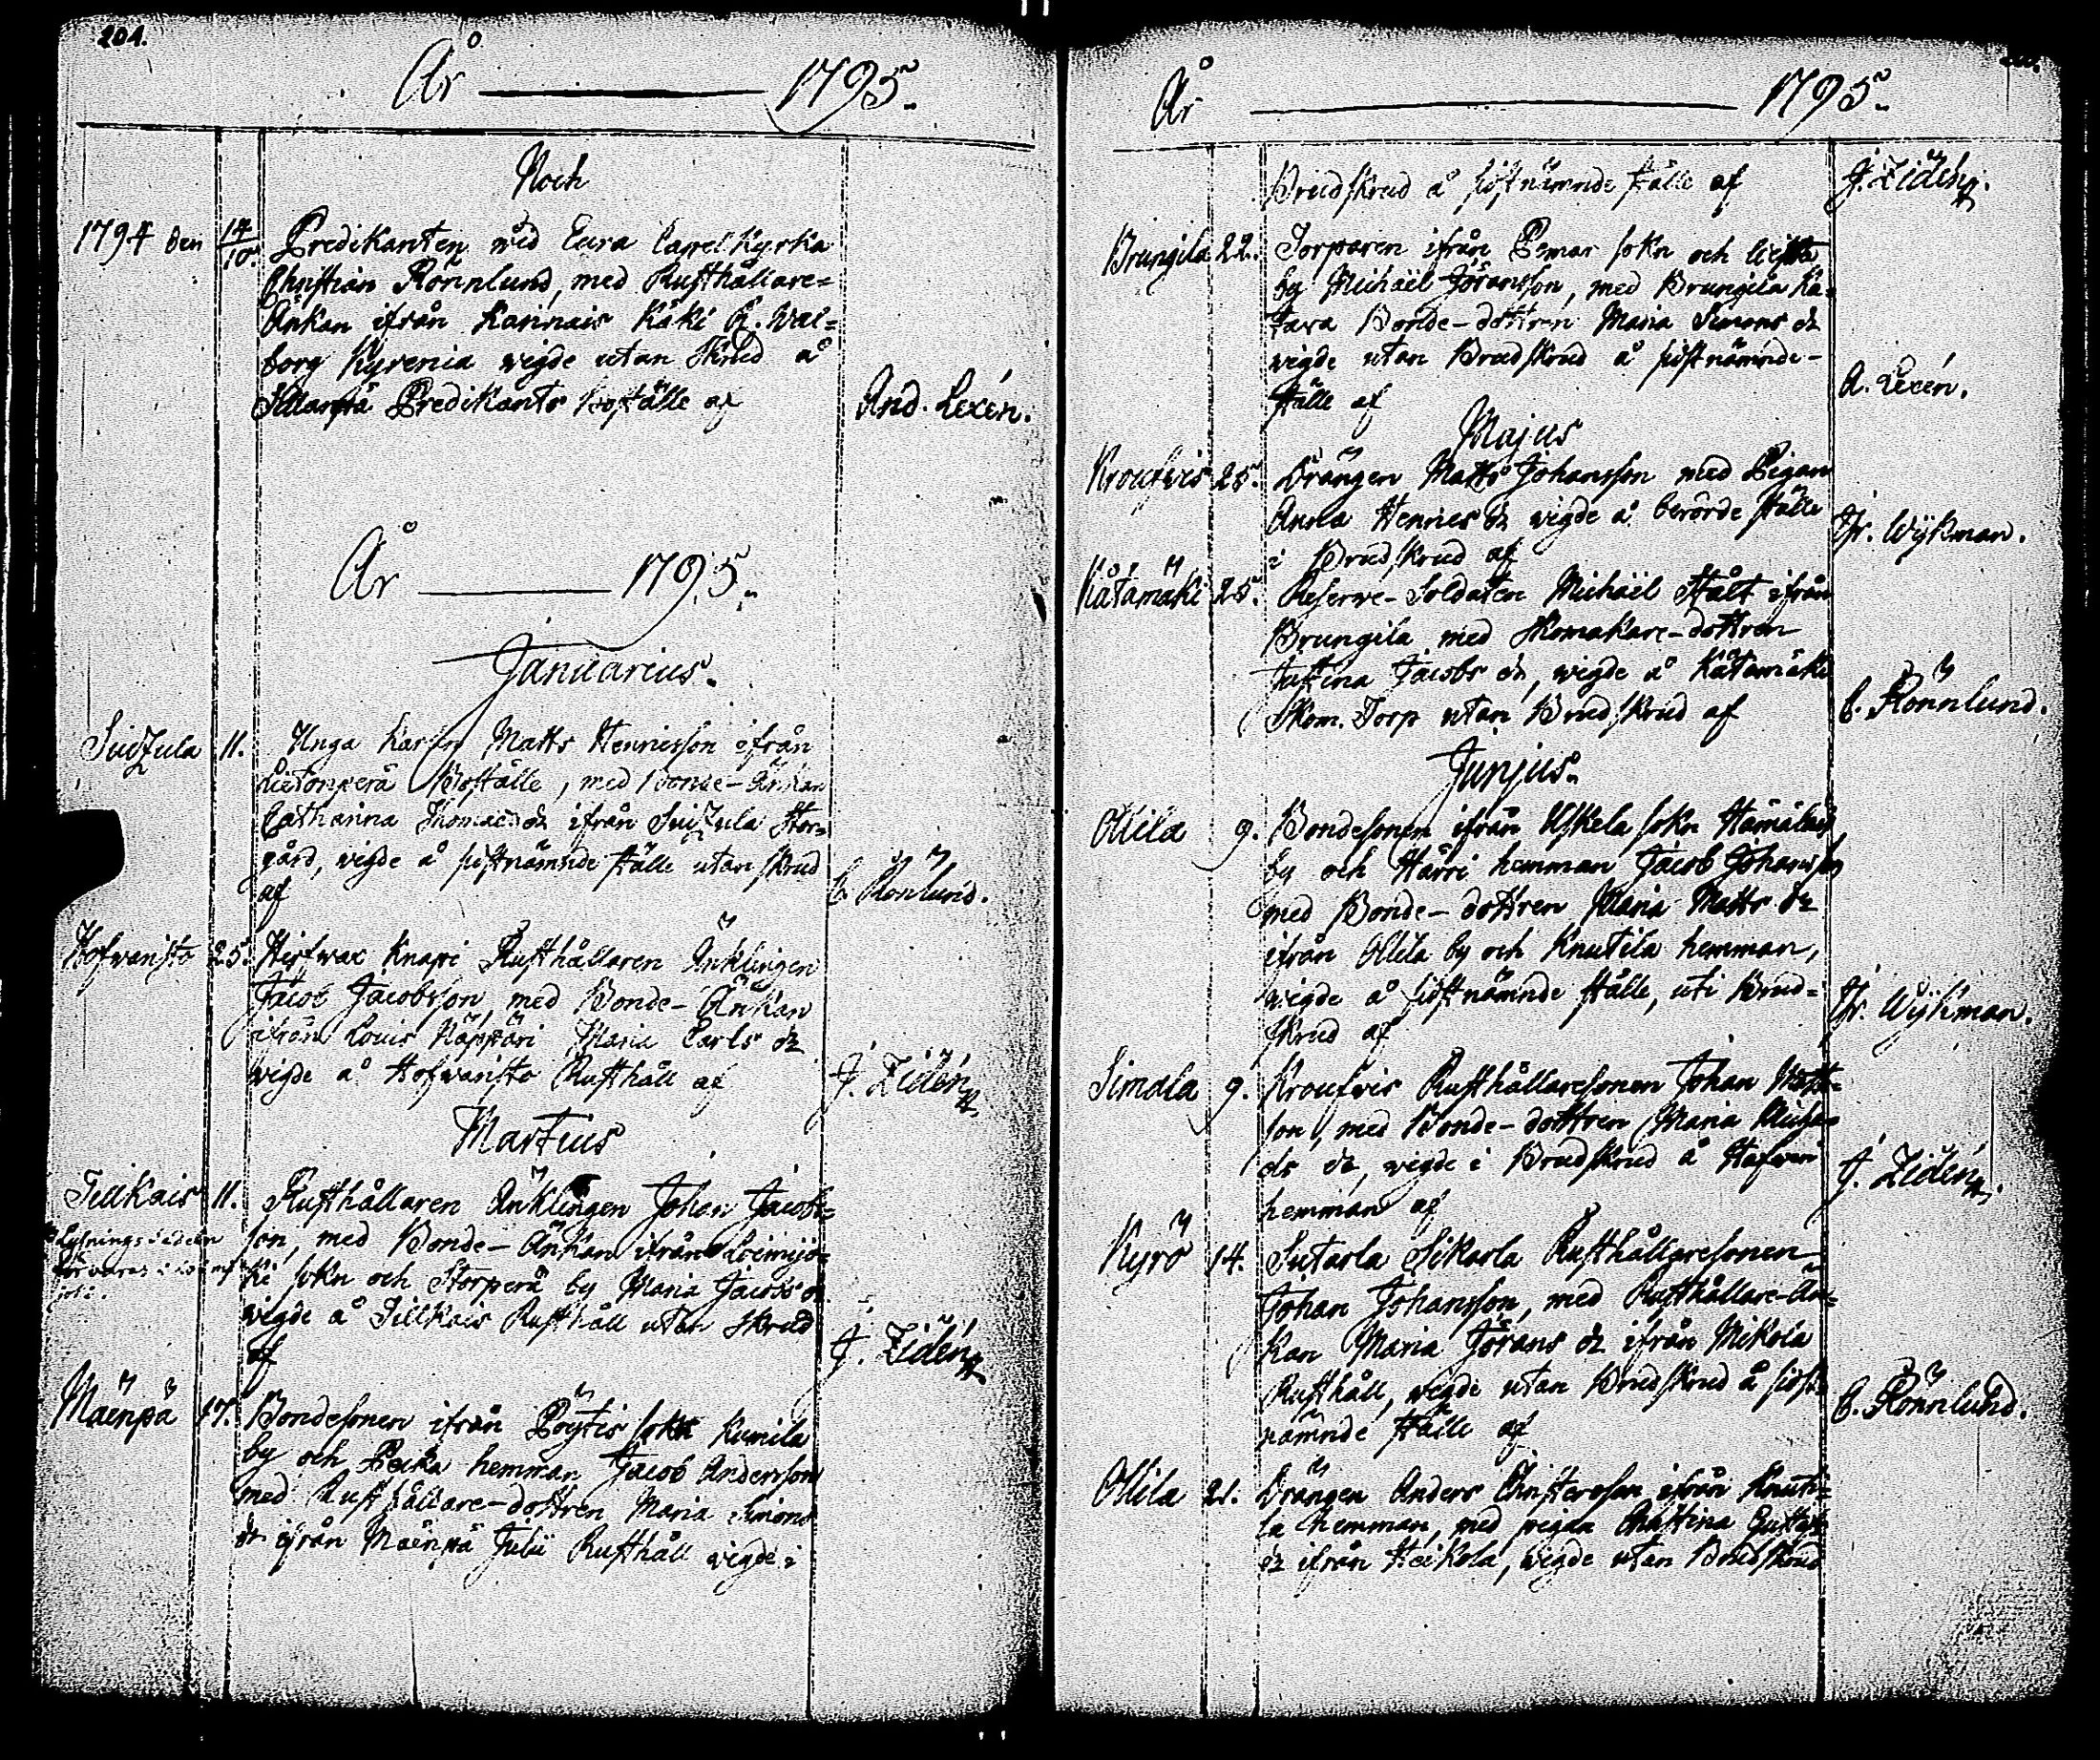 204.
År 1795.
Noch
1794 den 14/10. Predikanten wid Eura Capel Kyrka
Christian Rönnlund, med Rusthållare=
Änkan ifrån Kannais Käki B. Wal=
borg Kyrenia wigde utan Skrud å
Predikants Boställe af And. Lexén.
År 1795.
Januarius.
Suizula 11. Unga Karlen Matts Henricsson ifrån
Boställe, med Bonde-Änkan
Catharina Thomæ dr ifrån Suizula Stor=
gård, wigde å sistnämnde ställe utan skrud
af C. Rönlund.
Hofwanisto 25. Knapi Rusthållaren Änklingen
Jacob Jacobsson, med Bonde-Änkan
ifrån Louis Näppäri Maria Carls dr
wigde å Hofwanisto Rusthåll af J. Zidén
Martius
Tillkais 11. Rusthållaren Änklingen Johan Jacobs=
son, med Bonde-Änkan ifrån Loimijo=
ki sokn och Storperä by Maria Jacobs dr
wigde å Tillkais Rusthåll utan Skrud
af J. Zidén
Lysnings Sedeln
Mäenpä 17. Bondesonen ifrån Pöytis sokn Kumila
by och hemman Jacob Andersson
med Rusthållare-dottren Maria Simons
dr ifrån Mäenpä Juli Rusthåll wigde i
År 1795.
Brudskrud å sistnämnde ställe af J. Zidén.
Brungila 22. Torparen ifrån Pemar sokn och
by Michaël Jöransson, med Brungila Ka=
tava Bonde-dottren Maria Simons dr
wigde utan Brudskrud å sistnämnde-
ställe af A. Lexén.
Majus
Kroufwis 25. Drängen Matts Johansson med Pigan
Anna Henrics dr wigde å berörde ställe
i Brudskrud af Fr. Wykman.
Kåtamäki 25. Reserve-Soldaten Michaël Stålt ifrån
Brungila med Skomakare-dottren
Justina Jacobs dr, wigde å Kåtamäki
Skom. Torp utan Brudskrud af C. Rönnlund.
Junius.
Ollila 9. Bondesonen ifrån Uskela sokn
by och Härri hemman Jacob Johansson
med Bonde-dottren Maria Matts dr
ifrån Ollila by och Knutila hemman,
wigde å sistnämnde ställe, uti Brud=
skrud af Fr. Wykman.
Simala 9. Kroufwis Rusthållaresonen Johan Matts=
son, med Bonde-dottren Maria Micha=
els dr, wigde i Brudskrud å
hemman af J. Zidén.
Kyrö 14. Sutarla Sikarla Rusthållaresonen
Johan Johansson, med Rusthållare-Än=
kan Maria Jörans dr ifrån Mikola
Rusthåll, wigde utan Brudskrud å sist=
nämnde ställe af C. Rönnlund.
Ollila 21. Drängen Anders Christersson ifrån Knuti=
la hemman, med pigan Christina
dr ifrån Heikola, wigde utan Brudskrud